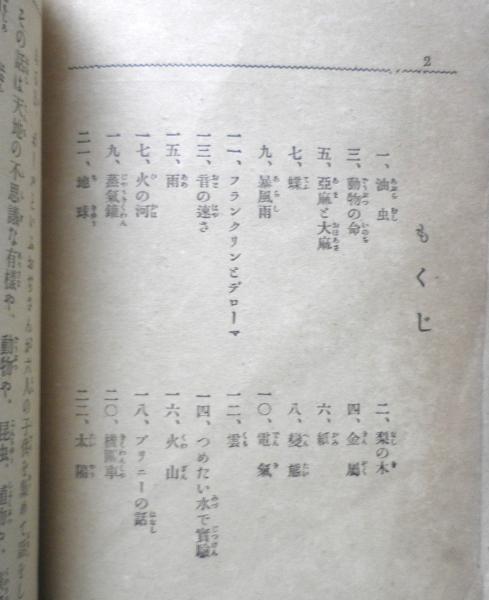 2
もくじ
一、油虫
二、梨の木
三、動物の命
四、金屬
五、亞麻と大麻
六、紙
七、蝶
八、變態
九、暴風雨
一〇、電氣
一一、フランクリンとデローマ
一二、雲
一三、音の速さ
一四、つめたい水で實驗
一五、雨
一六、火山
一七、火の河
一八、プリニーの話
一九、蒸氣鑵
二〇、機關車
二一、地球
二二、太陽
その話は天地の不思議な有樣や、動物や、昆虫、植物や、